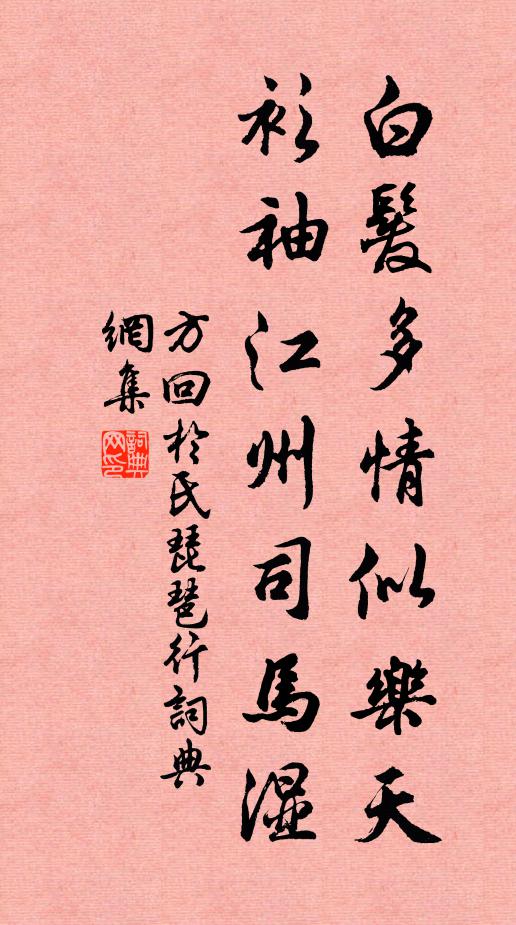 白髮多情似樂天
衫袖江州司馬濕
方回於氏琵琶行詞典
網集
詞典
网印